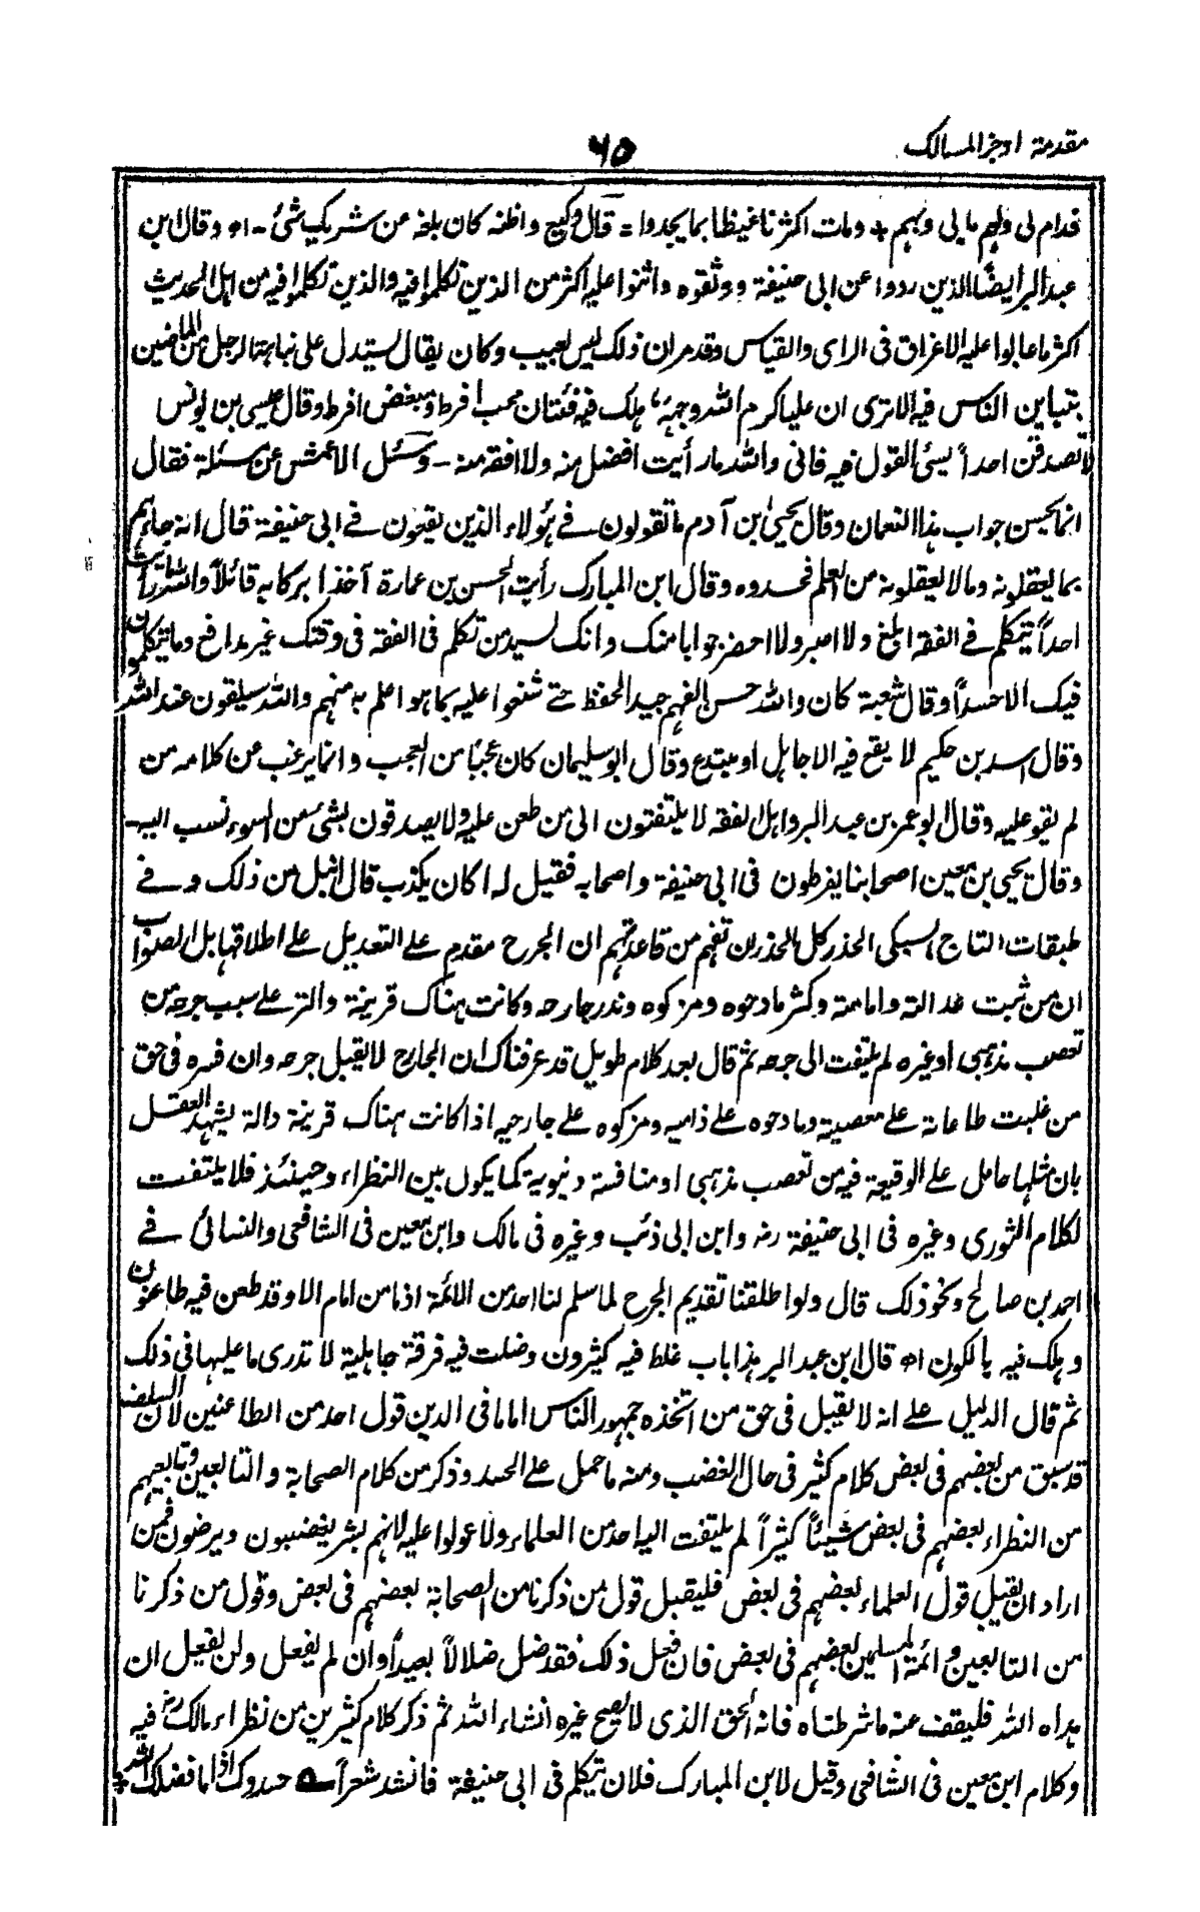 مقدمة اوجز المسالك
٦٥
فدام لى ولهم ما بى وبهم + ومات اكثرنا غيظا بما يجدوا = قال وكيع واظنه كان بلغه عن شريك شئ - اه وقال ابن
عبد البر ايضاً الذين رووا عن ابى حنيفة ووثقوه واثنوا عليه اكثر من الذين تكلموا فيه والذين تكلموا فيه من اهل الحديث
اكثر ما عابوا عليه الاغراق فى الراى والقياس وقد مر ان ذلك ليس بعيب وكان يقال يستدل على نباهة الرجل من الماضين
بتباين الناس فيه الا ترى ان عليا كرم الله وجهه هلك فيه فئتان محب افرط ومبغض افرط وقال عيسى بن يونس
لا تصدقن احداً يسئ القول فيه فانى والله ما رأيت افضل منه ولا افقه منه - وسئل الاعمش عن مسئلة فقال
انما يحسن جواب هذا النعمان وقال يحيىٰ بن آدم ما تقولون فے هؤلاء الذين يقعون فے ابى حنيفة قال انه جاءهم
بما يعقلونه وما لا يعقلونه من العلم فحسدوه وقال ابن المبارك رأيت الحسن بن عمارة آخذا بركابه قائلاً والله ما رأيت
احداً يتكلم فے الفقه ابلغ ولا اصبر ولا احضر جوابا منك وانك لسيد من تكلم فى الفقه فى وقتك غير مدافع وما يتكلمون
فيك الا حسداً وقال شعبة كان والله حسن الفهم جيد الحفظ حتے شنعوا عليه بما هو اعلم به منهم والله سيلقون عند الله
وقال اسد بن حكيم لا يقع فيه الا جاهل او مبتدع وقال ابو سليمان كان عجبًا من العجب وانما يرغب عن كلامه من
لم يقو عليه وقال ابو عمر بن عبد البر واهل الفقه لا يلتفتون الى من طعن عليه ولا يصدقون بشئ من السوء نسب اليه
وقال يحيى بن معين اصحابنا يفرطون فى ابى حنيفة واصحابه فقيل له ا كان يكذب قال انبل من ذلك وفے
طبقات التاج السبكى الحذر كل الحذر ان تفهم من قاعدتهم ان الجرح مقدم علے التعديل علے اطلاقها بل الصواب
ان من ثبت عدالته وامامته وكثر مادحوه ومزكوه وندر جارحه وكانت هناك قرينة دالة علے سبب جرحه من
تعصب مذهبى او غيره لم يلتفت الى جرحه ثم قال بعد كلام طويل قد عرفناك ان الجارح لا يقبل جرحه وان فسره فى حق
من غلبت طاعاته علے معصيته ومادحوه علے ذاميه ومزكوه علے جارحيه اذا كانت هناك قرينة دالة يشهد العقل
بان مثلها حامل علے الوقيعة فيه من تعصب مذهبى او منافسة دنيوية كما يكون بين النظراء وحينئذ فلا يلتفت
لكلام الثورى وغيره فى ابى حنيفة رضه وابن ابى ذئب وغيره فى مالك وابن معين فى الشافعى والنسائى فے
احمد بن صالح ونحو ذلك قال ولو اطلقنا تقديم الجرح لما سلم لنا احد من الائمة اذ ما من امام الا وقد طعن فيه طاعنون
وهلك فيه هالكون اه قال ابن عبد البر هذا باب غلط فيه كثيرون وضلت فيه فرقة جاهلية لا تدرى ما عليها فى ذلك
ثم قال الدليل علے انه لا يقبل فى حق من اتخذه جمهور الناس اماما فى الدين قول احد من الطاعنين لان السلف
قد سبق من بعضهم فى بعض كلام كثير فى حال الغضب ومنه ما حمل علے الحسد وذكر من كلام الصحابة والتابعين وتابعيهم
من النظراء بعضهم فى بعض شيئاً كثيراً لم يلتفت اليه احد من العلماء ولا عولوا عليه لانهم بشر يغضبون ويرضون فمن
اراد ان يقبل قول العلماء بعضهم فى بعض فليقبل قول من ذكرنا من الصحابة بعضهم فى بعض وقول من ذكرنا
من التابعين وائمة المسلمين بعضهم فى بعض فان فعل ذلك فقد ضل ضلالاً بعيداً وان لم يفعل ولن يفعل ان
هداه الله فليقف عند ما شرطناه فانه الحق الذى لا يصح غيره انشاء الله ثم ذكر كلام كثيرين من نظراء مالك رض فيه
وكلام ابن معين فى الشافعى وقيل لابن المبارك فلان يتكلم فى ابى حنيفة فانشد شعراً ؎ حسدوك اذا ما فضلك الله +